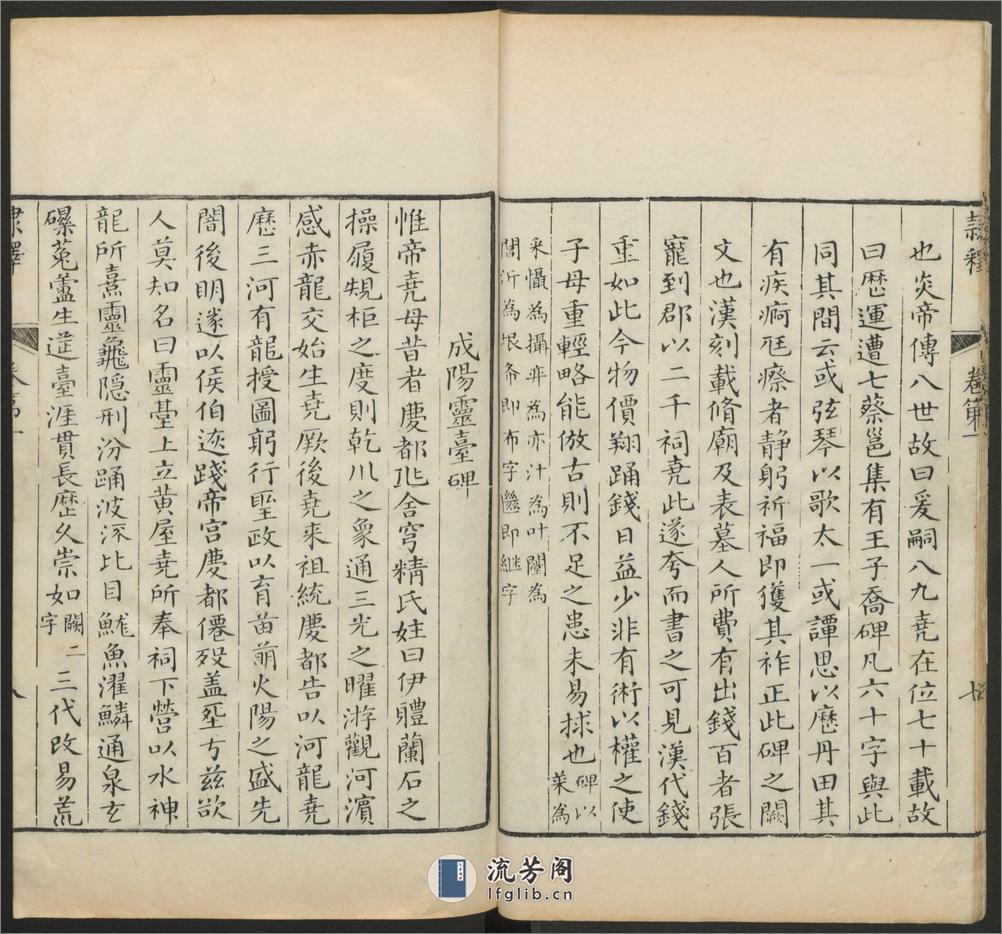 隸釋 卷第一
也炎帝傳八世故曰爰嗣八九堯在位七十載故
曰歷運遭七蔡邕集有王子喬碑凡六十字與此
同其間云或弦琴以歌太一或譚思以歷丹田其
有疾痾尫瘵者静躬祈福即獲其祚正此碑之闕
文也漢刻載脩廟及表墓人所費有出錢百者張
寵到郡以二千祠堯此遂夸而書之可見漢代錢
重如此今物價翔踊錢日益少非有術以權之使
子母重輕略能倣古則不足之患未易捄也碑以
菜為
采懾為攝弈為亦汁為叶闓為
閶沂為垠希即布字繼即継字
成陽靈臺碑
惟帝堯母昔者慶都兆舍穹精氏姓曰伊體蘭石之
操履規柜之度則乾川之象通三光之曜游觀河濱
感赤龍交始生堯厥後堯来祖統慶都告以河龍堯
歷三河有龍授圖躬行聖政以育苗萌火陽之盛先
闇後明遂以侯伯恢踐帝宫慶都僊歿蓋葬于兹欲
人莫知名曰靈臺上立黄屋堯所奉祠下營以水神
龍所熹靈龜隠刑汾踊波流比目鮀魚濯鱗通泉玄
礫菟蘆生莚臺涯貫長歷久崇如闕二字三代改易荒
隸釋 卷第一 八
流芳阁
lfglib.cn